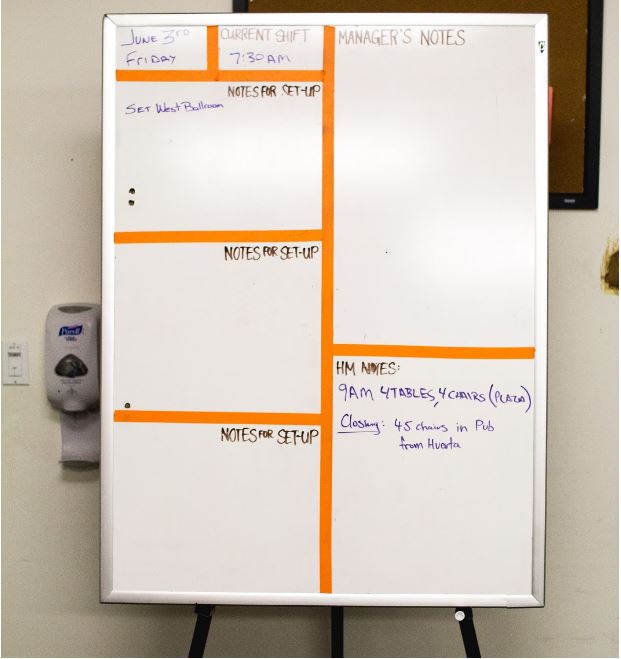 JUNE 3RD
FRIDAY
CURRENT SHIFT
7:30AM
MANAGER'S NOTES
NOTES FOR SET-UP
SET West Ballroom
NOTES FOR SET-UP
NOTES FOR SET-UP
HM NOTES:
9AM 4 TABLES, 4 CHAIRS (PLAZA)
Closing: 45 chairs in Pub
from Huerta
Purell